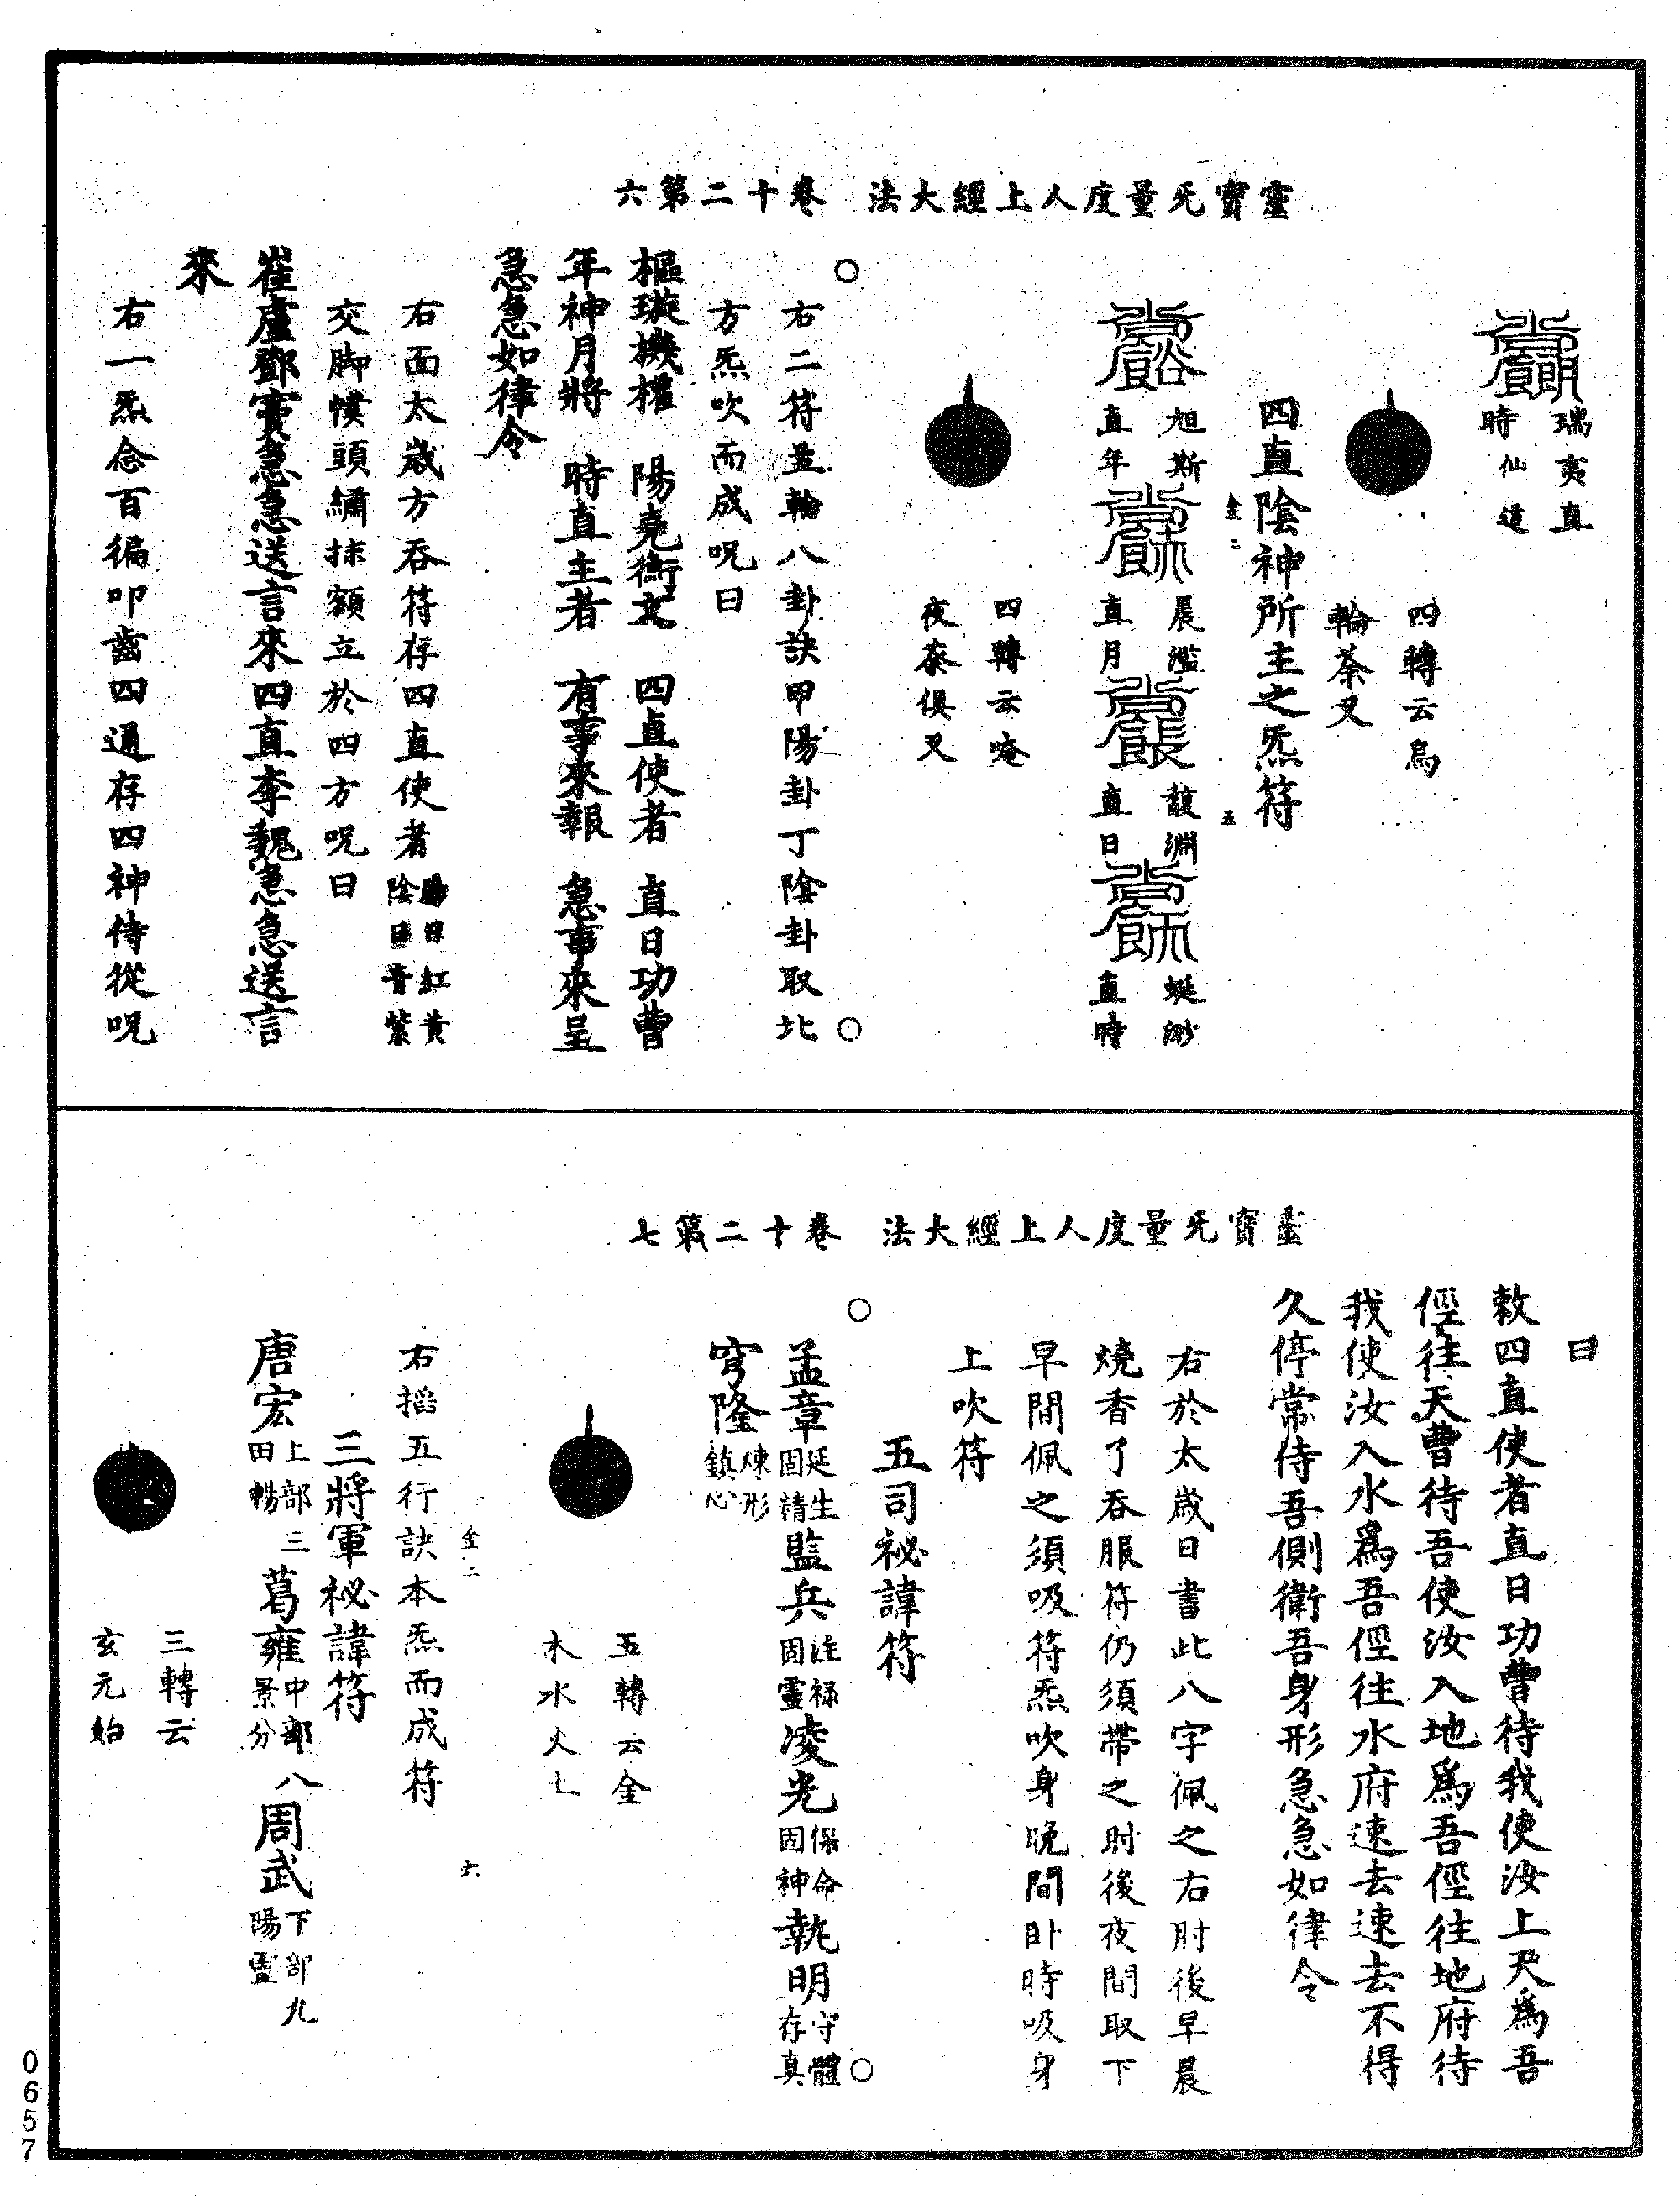 靈寶无量度人上經大法　卷十二第六
瑞夷直
時仙道
四轉云烏
輪荼叉
四直陰神所主之炁符
金二　五
旭斯
直年
晨濫
直月
馥淵
直日
蜒渺
直時
四轉云唵
夜俱叉
右二符並輪八卦訣甲陽卦丁陰卦取北
方炁吹而成呪曰
樞璇機權　陽堯衡文　四直使者　直日功曹
年神月將　時直主者　有事來報　急事來呈
急急如律令
右面太歲方吞符存四直使者陽日紅黃陰日青紫
交脚幞頭繡抹額立於四方呪曰
崔盧鄧竇急急送言來四直李魏急急送言
來
右一炁念百徧叩齒四通存四神侍從呪
靈寶无量度人上經大法　卷十二第七
曰
敕四直使者直日功曹待我使汝上天為吾
徑往天曹待吾使汝入地為吾徑往地府待
我使汝入水為吾徑往水府速去速去不得
久停常侍吾側衛吾身形急急如律令
右於太歲日書此八字佩之右肘後早晨
燒香了吞服符仍須帶之肘後夜間取下
早間佩之須吸符炁吹身晚間卧時吸身
上吹符
五司祕諱符
孟章延生固精監兵注祿固靈凌光保命固神執明守體存真
穹隆煉形鎮心
五轉云金
木水火土
右搯五行訣本炁而成符
金二　六
三將軍祕諱符
唐宏上部三田暢葛雍中部八景分周武下部九陽靈
三轉云
玄元始
0657